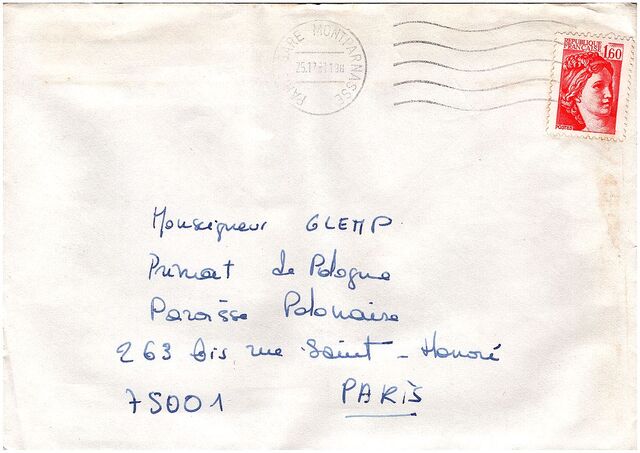 PARIS GARE MONTPARNASSE
REPUBLIQUE
FRANÇAISE
1,60
POSTES
Monseigneur GLEMP
Primat de Pologne
Paroisse Polonaise
263 bis rue Saint-Honoré
75001 PARIS